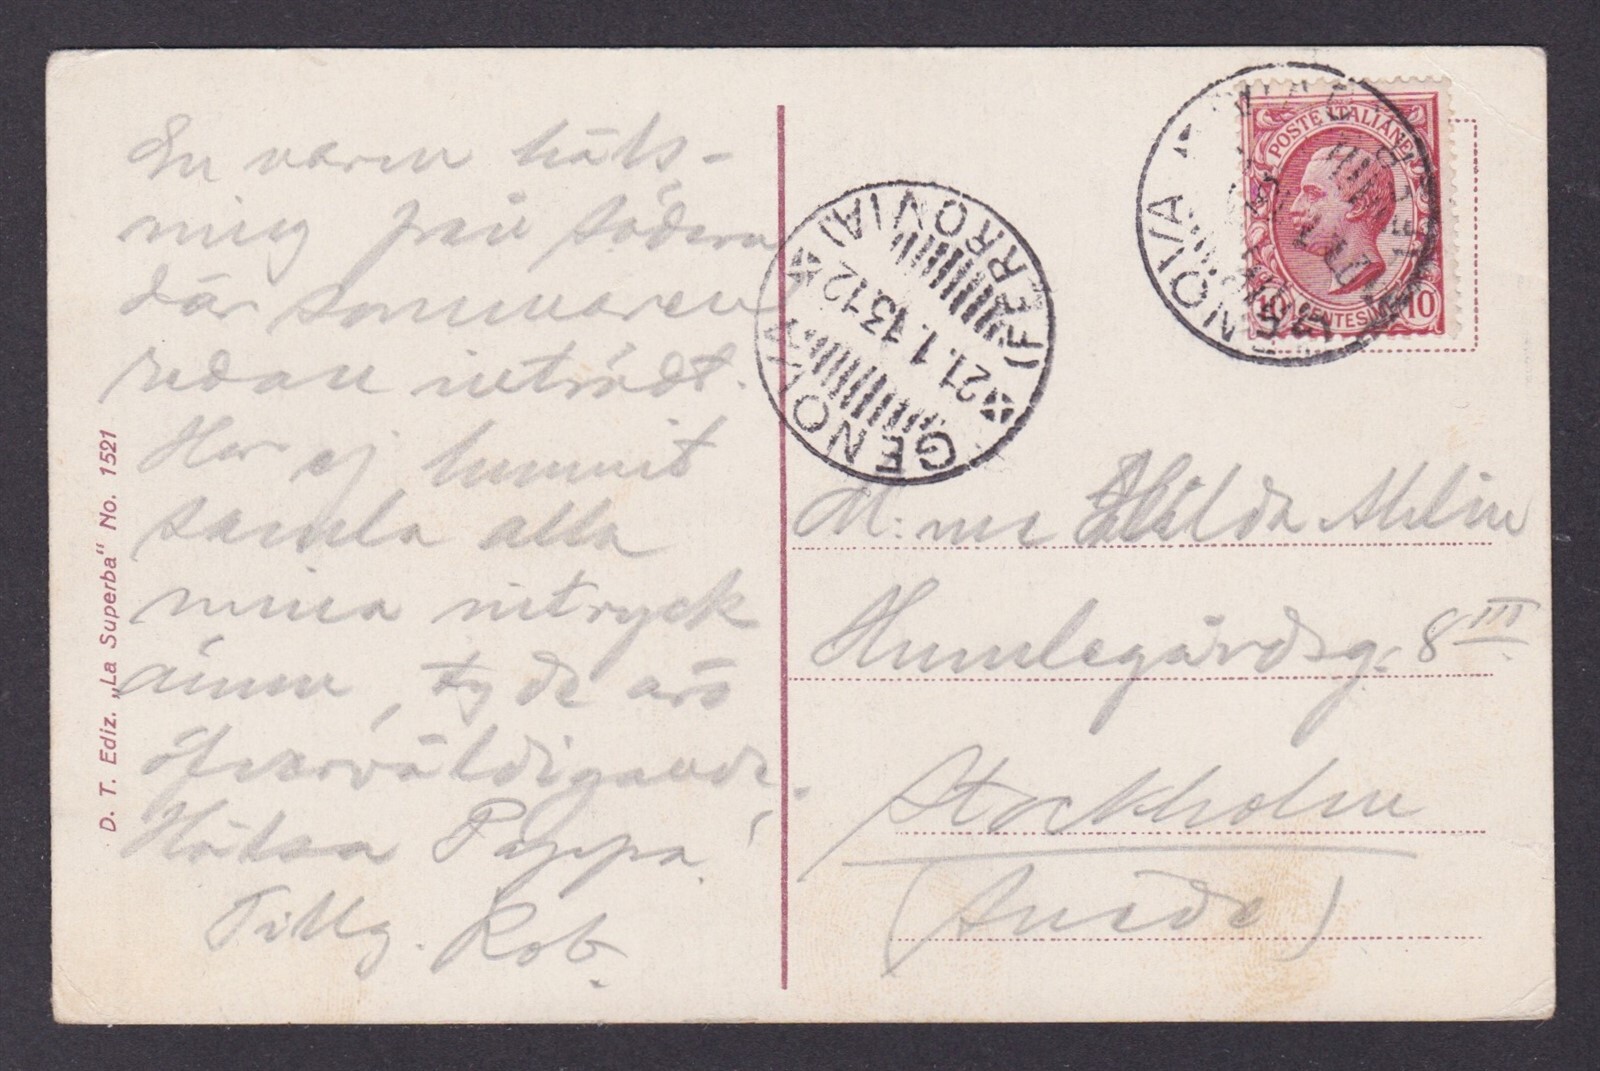 En varm häls-
ning från södern
där sommaren
redan inträdt.
Har ej hunnit
samla alla
mina intryck
ännu, ty de äro
öfverväldigande.
Hälsa Pappa!
Tillg. Rob.
D. T. Ediz. „La Superba" No. 1521
GENOVA (FERROVIA)
21.1.13.12
GENOVA
POSTE ITALIANE
10 CENTESIMI 10
M:me Hilda Ahlin
Humlegårdsg. 8 III
Stockholm
(Suède)